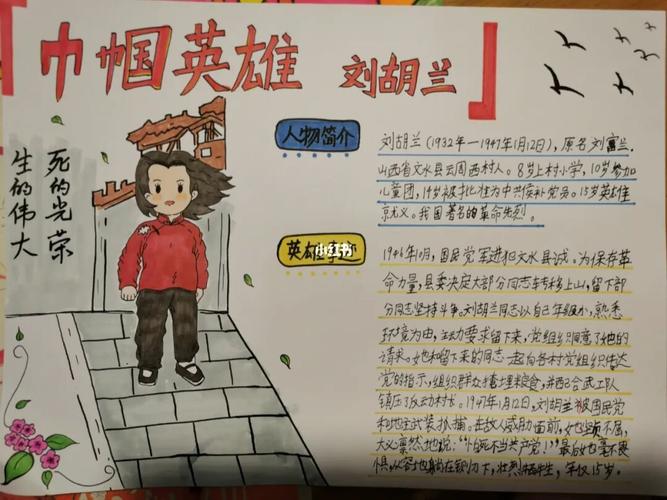 巾帼英雄 刘胡兰
生的伟大
死的光荣
人物简介
刘胡兰(1932年一1947年1月12日),原名刘富兰.
山西省文水县云周西村人。8岁上村小学,10岁参加
儿童团,14岁被批准为中共候补党员。15岁英雄
就义。我国著名的革命先烈。
英雄事迹
小红书
1946年10月,国民党军进犯文水县城。为保存革
命力量,县委决定大部分同志转移上山,留下部
分同志坚持斗争。刘胡兰同志以自己年级小,熟悉
环境为由,主动要求留下来,党组织同意了她的
请求。她和留下来的同志一起向各村党组织传达
党的指示,组织群众掩埋粮食,并配合武工队
镇压了反动村长。1947年1月12日,刘胡兰被国民党
和地主武装抓捕。在敌人威胁面前,她坚贞不屈,
大义凛然地说:“怕死不当共产党!”最后她毫不畏
惧,从容地躺在铡刀下,壮烈牺牲,年仅15岁。